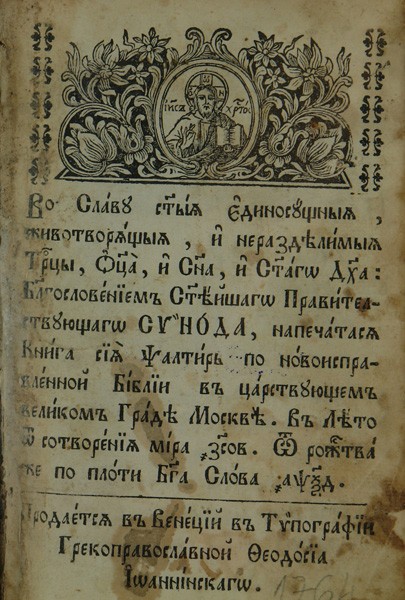 І҆И҃СЪ ХРТ҇ОС
Во Сла́вꙋ ст҃ы́ѧ є҆диносꙋ́щныѧ ,
животворѧ́щыѧ , и҆ нераздѣли́мыѧ
Трⷪ҇цы, Ѻ҆ц҃а̀, и҆ Сн҃а, и҆ Ст҃а́гѡ Дх҃а :
Бл҃гослове́нїемъ Ст҃ѣ́йшагѡ Правите́л-
ствꙋющагѡ СѴНО́ДА, напеча́тасѧ
Кни́га сїѧ̀ Ѱалти́рь по новоиспра-
вле́нной Бі́блїи въ ца́рствꙋющемъ
вели́комъ Гра́дѣ Москвѣ̀. Въ Лѣ́то
Ѿ сотворе́нїѧ мі́ра ҂зсов. Ѿ рождⷭ҇тва́
же по пло́ти Бг҃а Сло́ва ҂аѱѯд.
Продае́тсѧ въ Вене́цїй въ Тѷпогра́фїи
Грекоправосла́вной Ѳеодо́сїа
І҆ѡанні́нскагѡ.